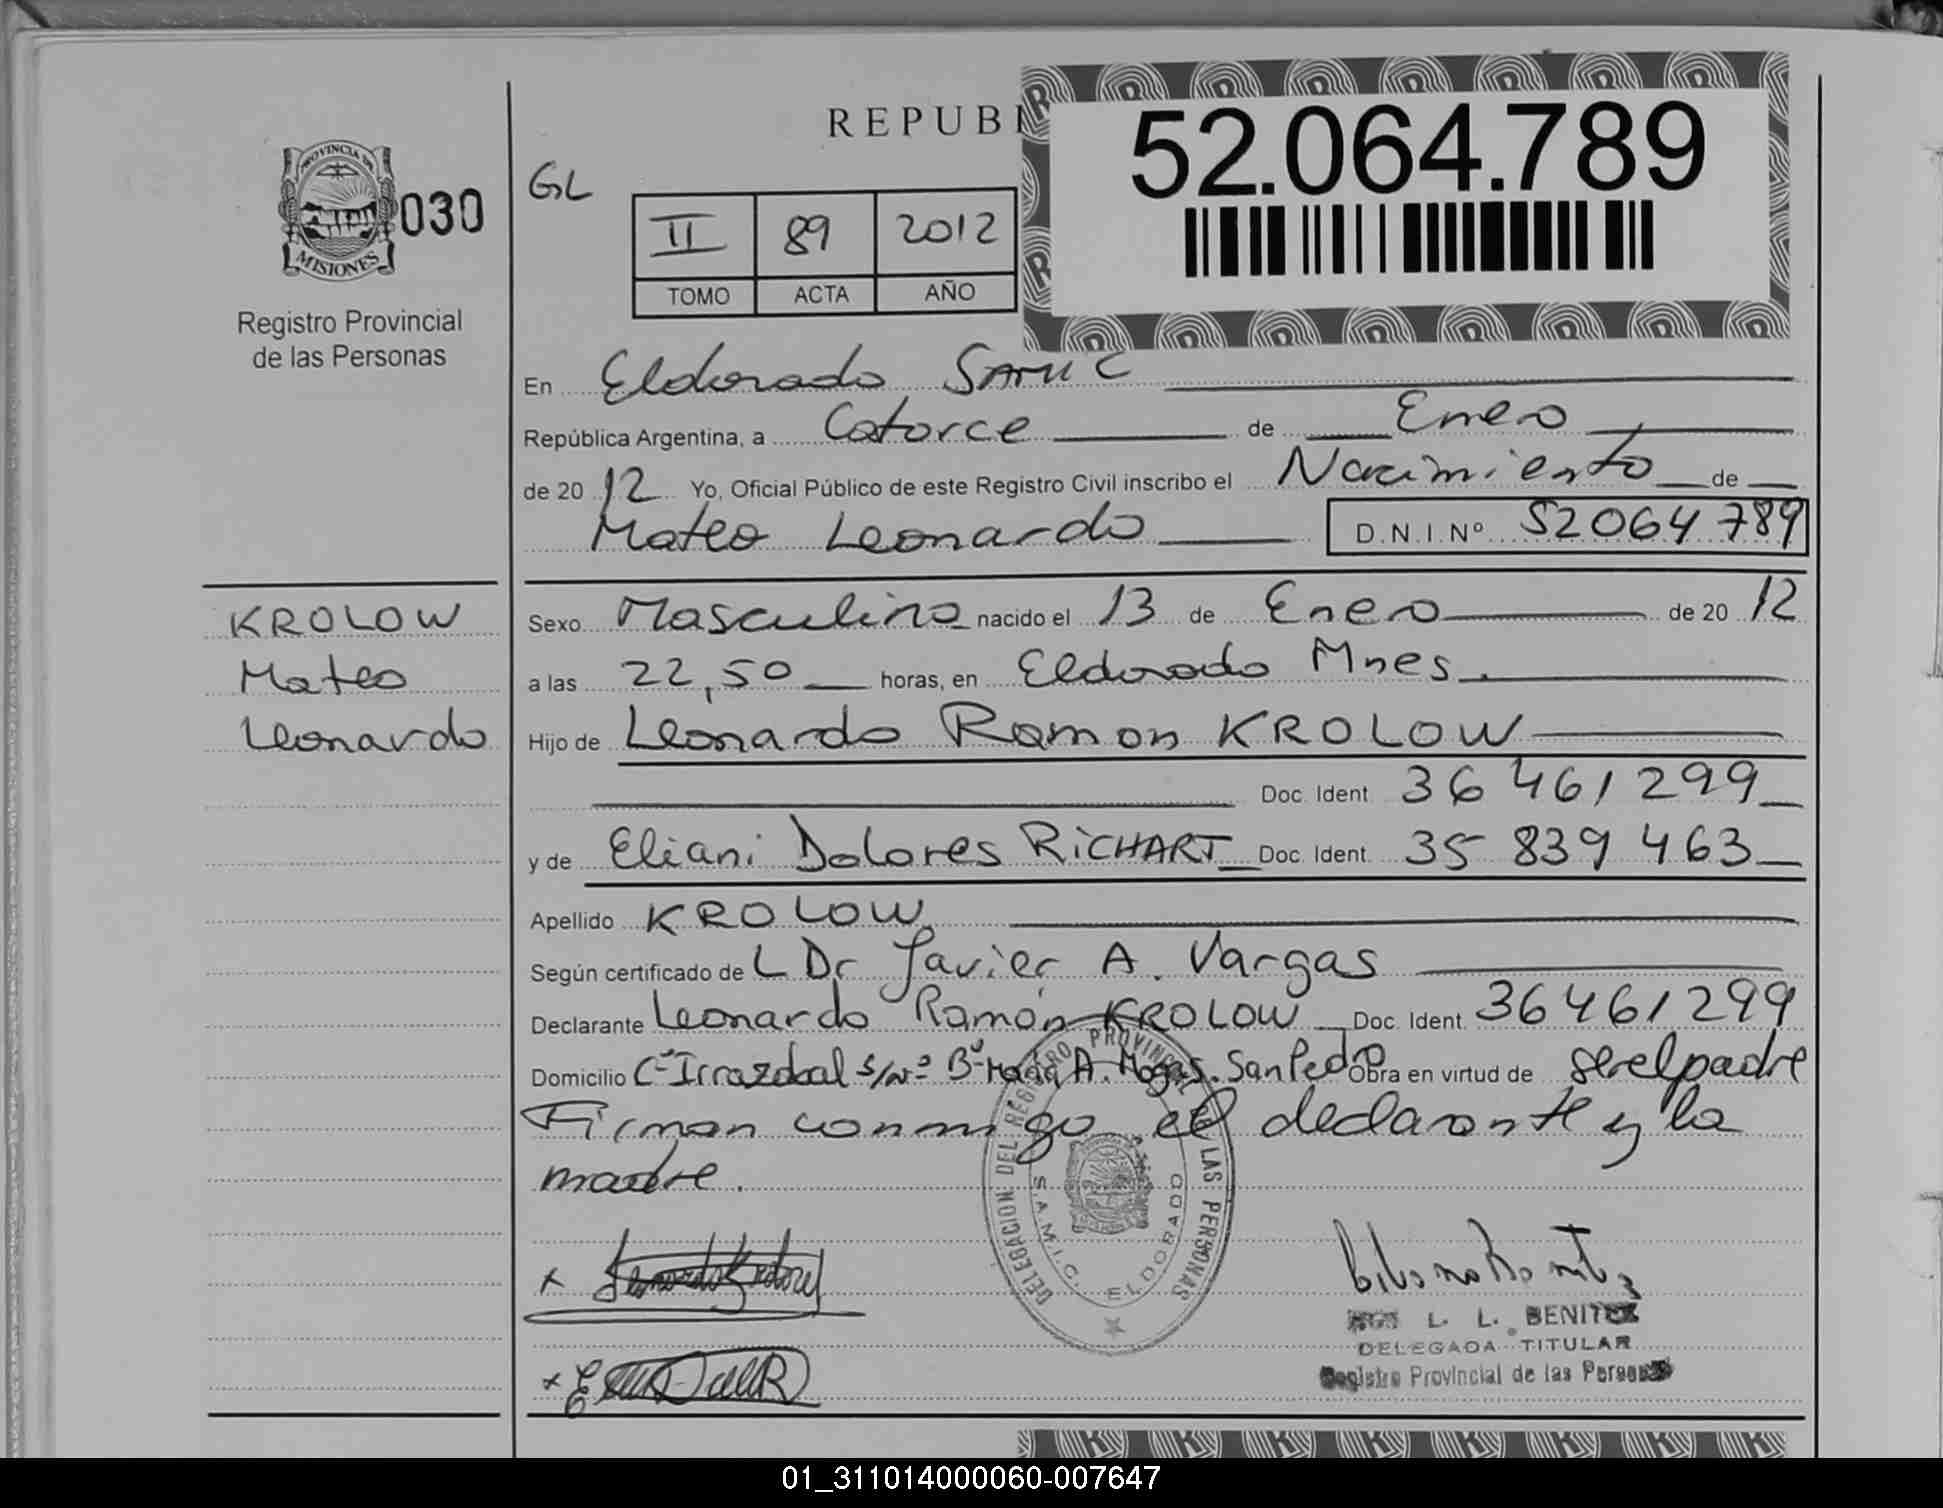 REPUBL
52.064.789
PROVINCIA DE
MISIONES
030
GL
II 89 2012
TOMO ACTA AÑO
Registro Provincial
de las Personas
En Eldorado SAMIC
República Argentina, a Catorce de Enero
de 2012 Yo, Oficial Público de este Registro Civil inscribo el Nacimiento de
Mateo Leonardo D.N.I.Nº 52064789
KROLOW
Mateo
Leonardo
Sexo Masculino nacido el 13 de Enero de 2012
a las 22,50 horas, en Eldorado Mnes.
Hijo de Leonardo Ramon KROLOW
Doc. Ident. 36 461 299
y de Eliani Dolores RICHART Doc. Ident. 35 839 463
Apellido KROLOW
Según certificado de L Dr Javier A. Vargas
Declarante Leonardo Ramón KROLOW Doc. Ident. 36461299
Domicilio C- Irrazabal s/nº Bº María A. Mogas. San Pedro Obra en virtud de ser el padre
Firman conmigo el declarante y la
madre.
DELEGACION DEL REGISTRO PROVINCIAL DE LAS PERSONAS
S.A.M.I.C. ELDORADO
L. L. BENITEZ
DELEGADA TITULAR
Registro Provincial de las Personas
01_311014000060-007647